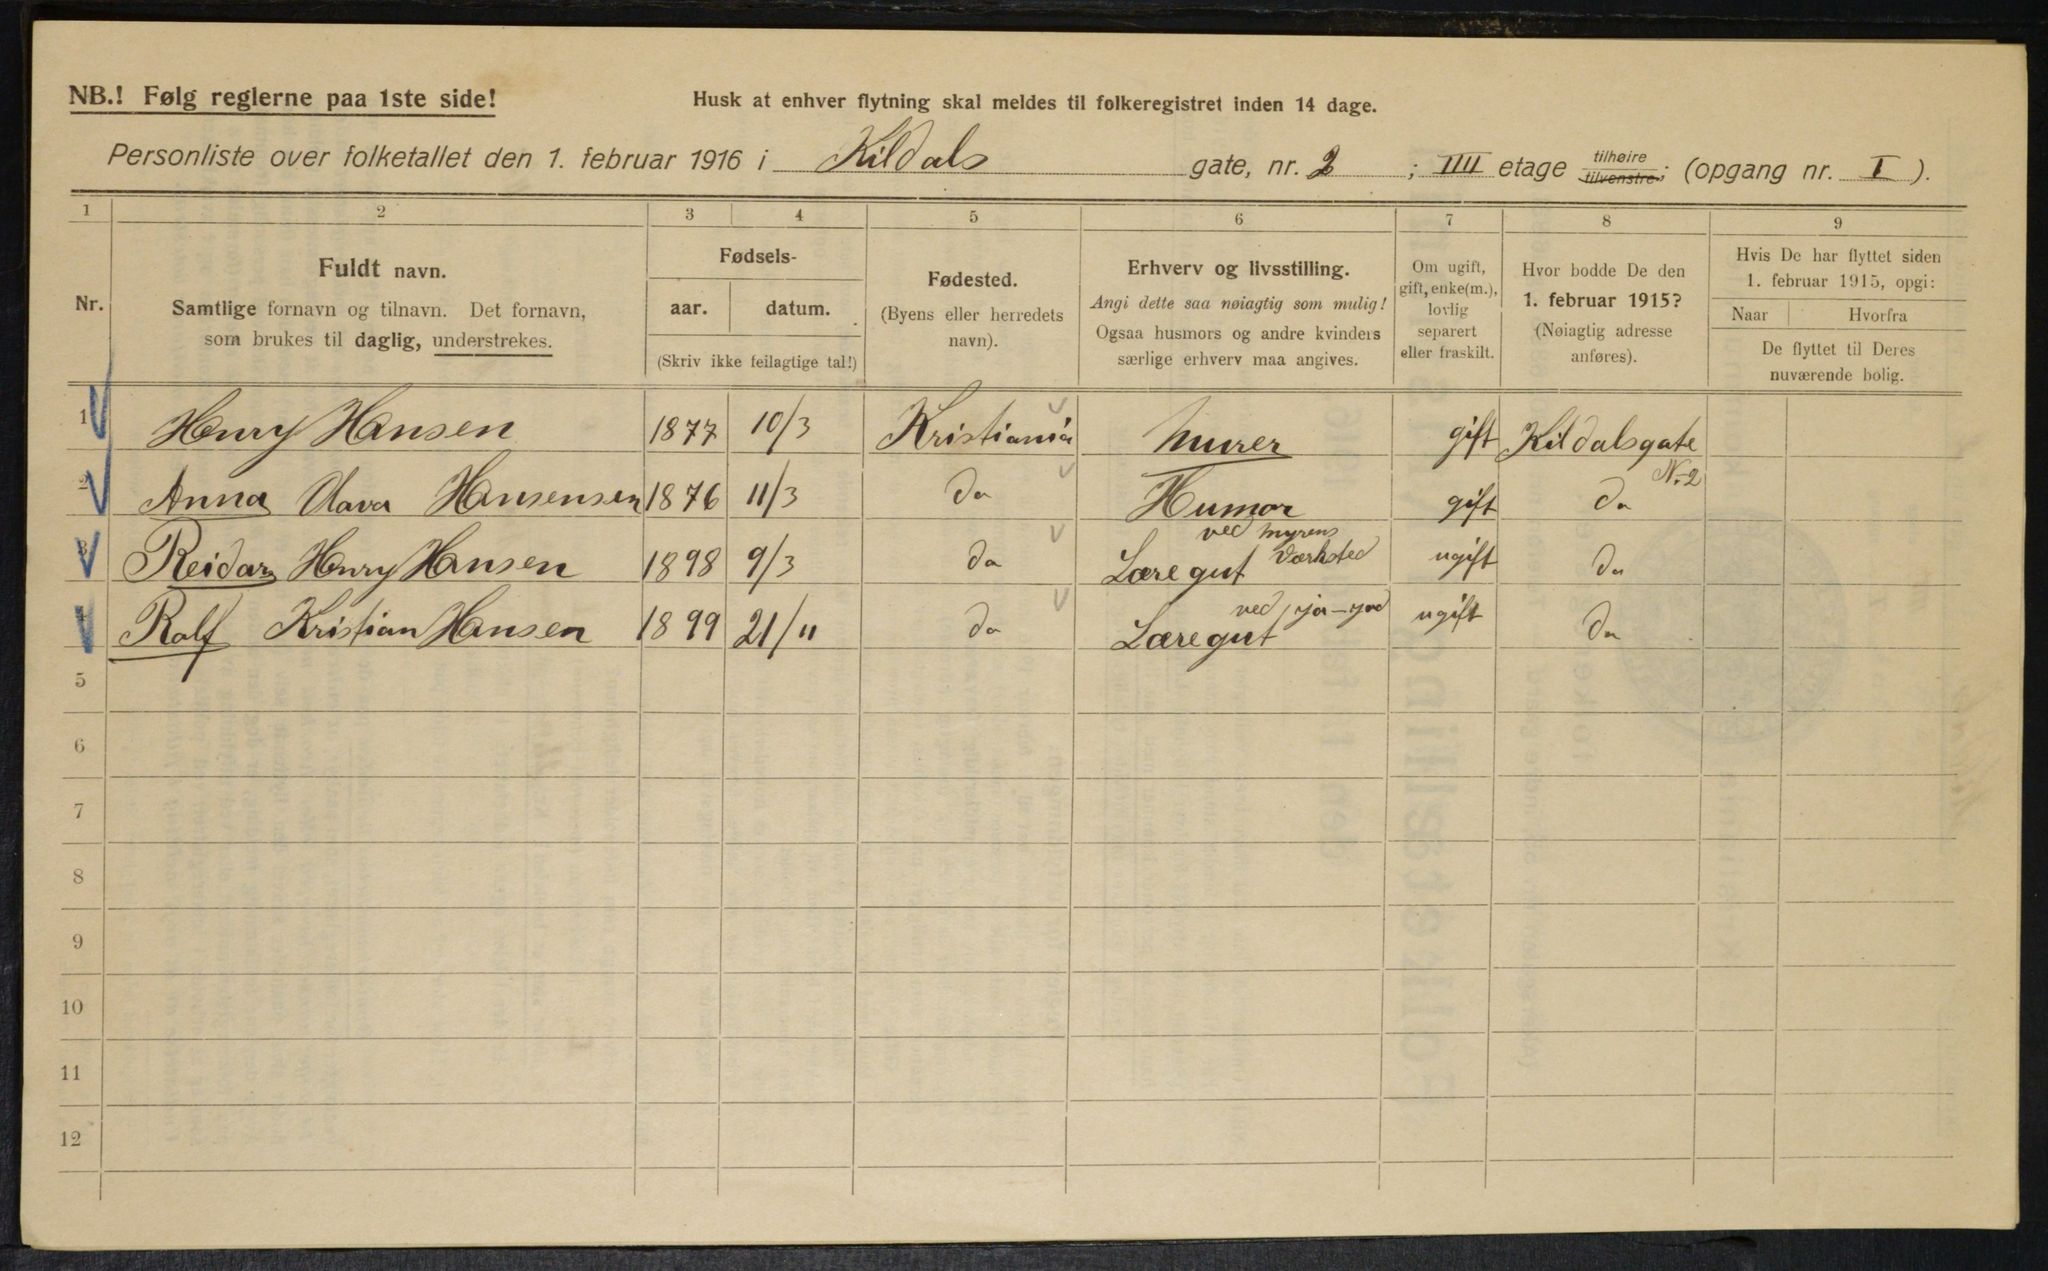 NB.! Følg reglerne paa 1ste side!
Husk at enhver flytning skal meldes til folkeregistret inden 14 dage.
Personliste over folketallet den 1. februar 1916 i Kildals gate, nr. 2 ; IIII etage tilhøire tilvenstre; (opgang nr. I ).
1 2 3 4 5 6 7 8 9
Nr.
Fuldt navn.
Samtlige fornavn og tilnavn. Det fornavn,
som brukes til daglig, understrekes.
Fødsels-
aar. datum.
(Skriv ikke feilagtige tal!)
Fødested.
(Byens eller herredets
navn).
Erhverv og livsstilling.
Angi dette saa nøiagtig som mulig!
Ogsaa husmors og andre kvinders
særlige erhverv maa angives.
Om ugift,
gift, enke(m.),
lovlig
separert
eller fraskilt.
Hvor bodde De den
1. februar 1915?
(Nøiagtig adresse
anføres).
Hvis De har flyttet siden
1. februar 1915, opgi:
Naar Hvorfra
De flyttet til Deres
nuværende bolig.
1 Henry Hansen 1877 10/3 Kristiania Murer gift Kildalsgate
N. 2
2 Anna Hansensen 1876 11/3 do Humor gift do
ved Myrens
3 Reidar Henry Hansen 1898 9/3 do Læregut Værksted ugift do
ved
4 Ralf Kristian Hansen 1899 21/11 do Læregut ugift do
5
6
7
8
9
10
11
12